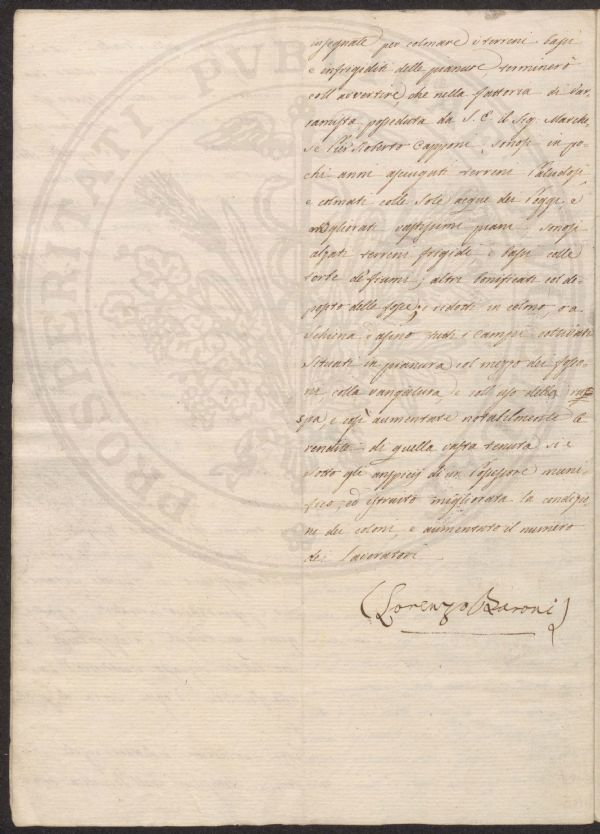 insegnate per colmare i terreni bassi
e infrigiditi delle pianure, terminerò
coll'avvertire, che nella fattoria di Var-
ramista posseduta da S. E. il Sig. Marche-
se Pier Roberto Capponi, sonosi in po-
chi anni asciugati terreni Paludosi,
e colmati colle sole acque dei Poggi, e
migliorati vastissimi piani sonosi
alzati terreni frigidi e bassi colle
torbe de' fiumi; altri bonificati col de-
posto delle fosse; e ridotti in colono, o a
schiena d'asino tutti i campi coltivati
situati in pianura col mezzo dei fosso-
ni colla vangatura, e coll'uso della rus-
pa e così aumentate notabilmente le
rendite di quella vasta tenuta si è
sotto gli auspicij di un Possessore muni-
fico, ed istruito migliorata la condizio-
ne dei coloni, e aumentato il numero
dei lavoratori
(Lorenzo Baroni)
PROSPERITATI PUB